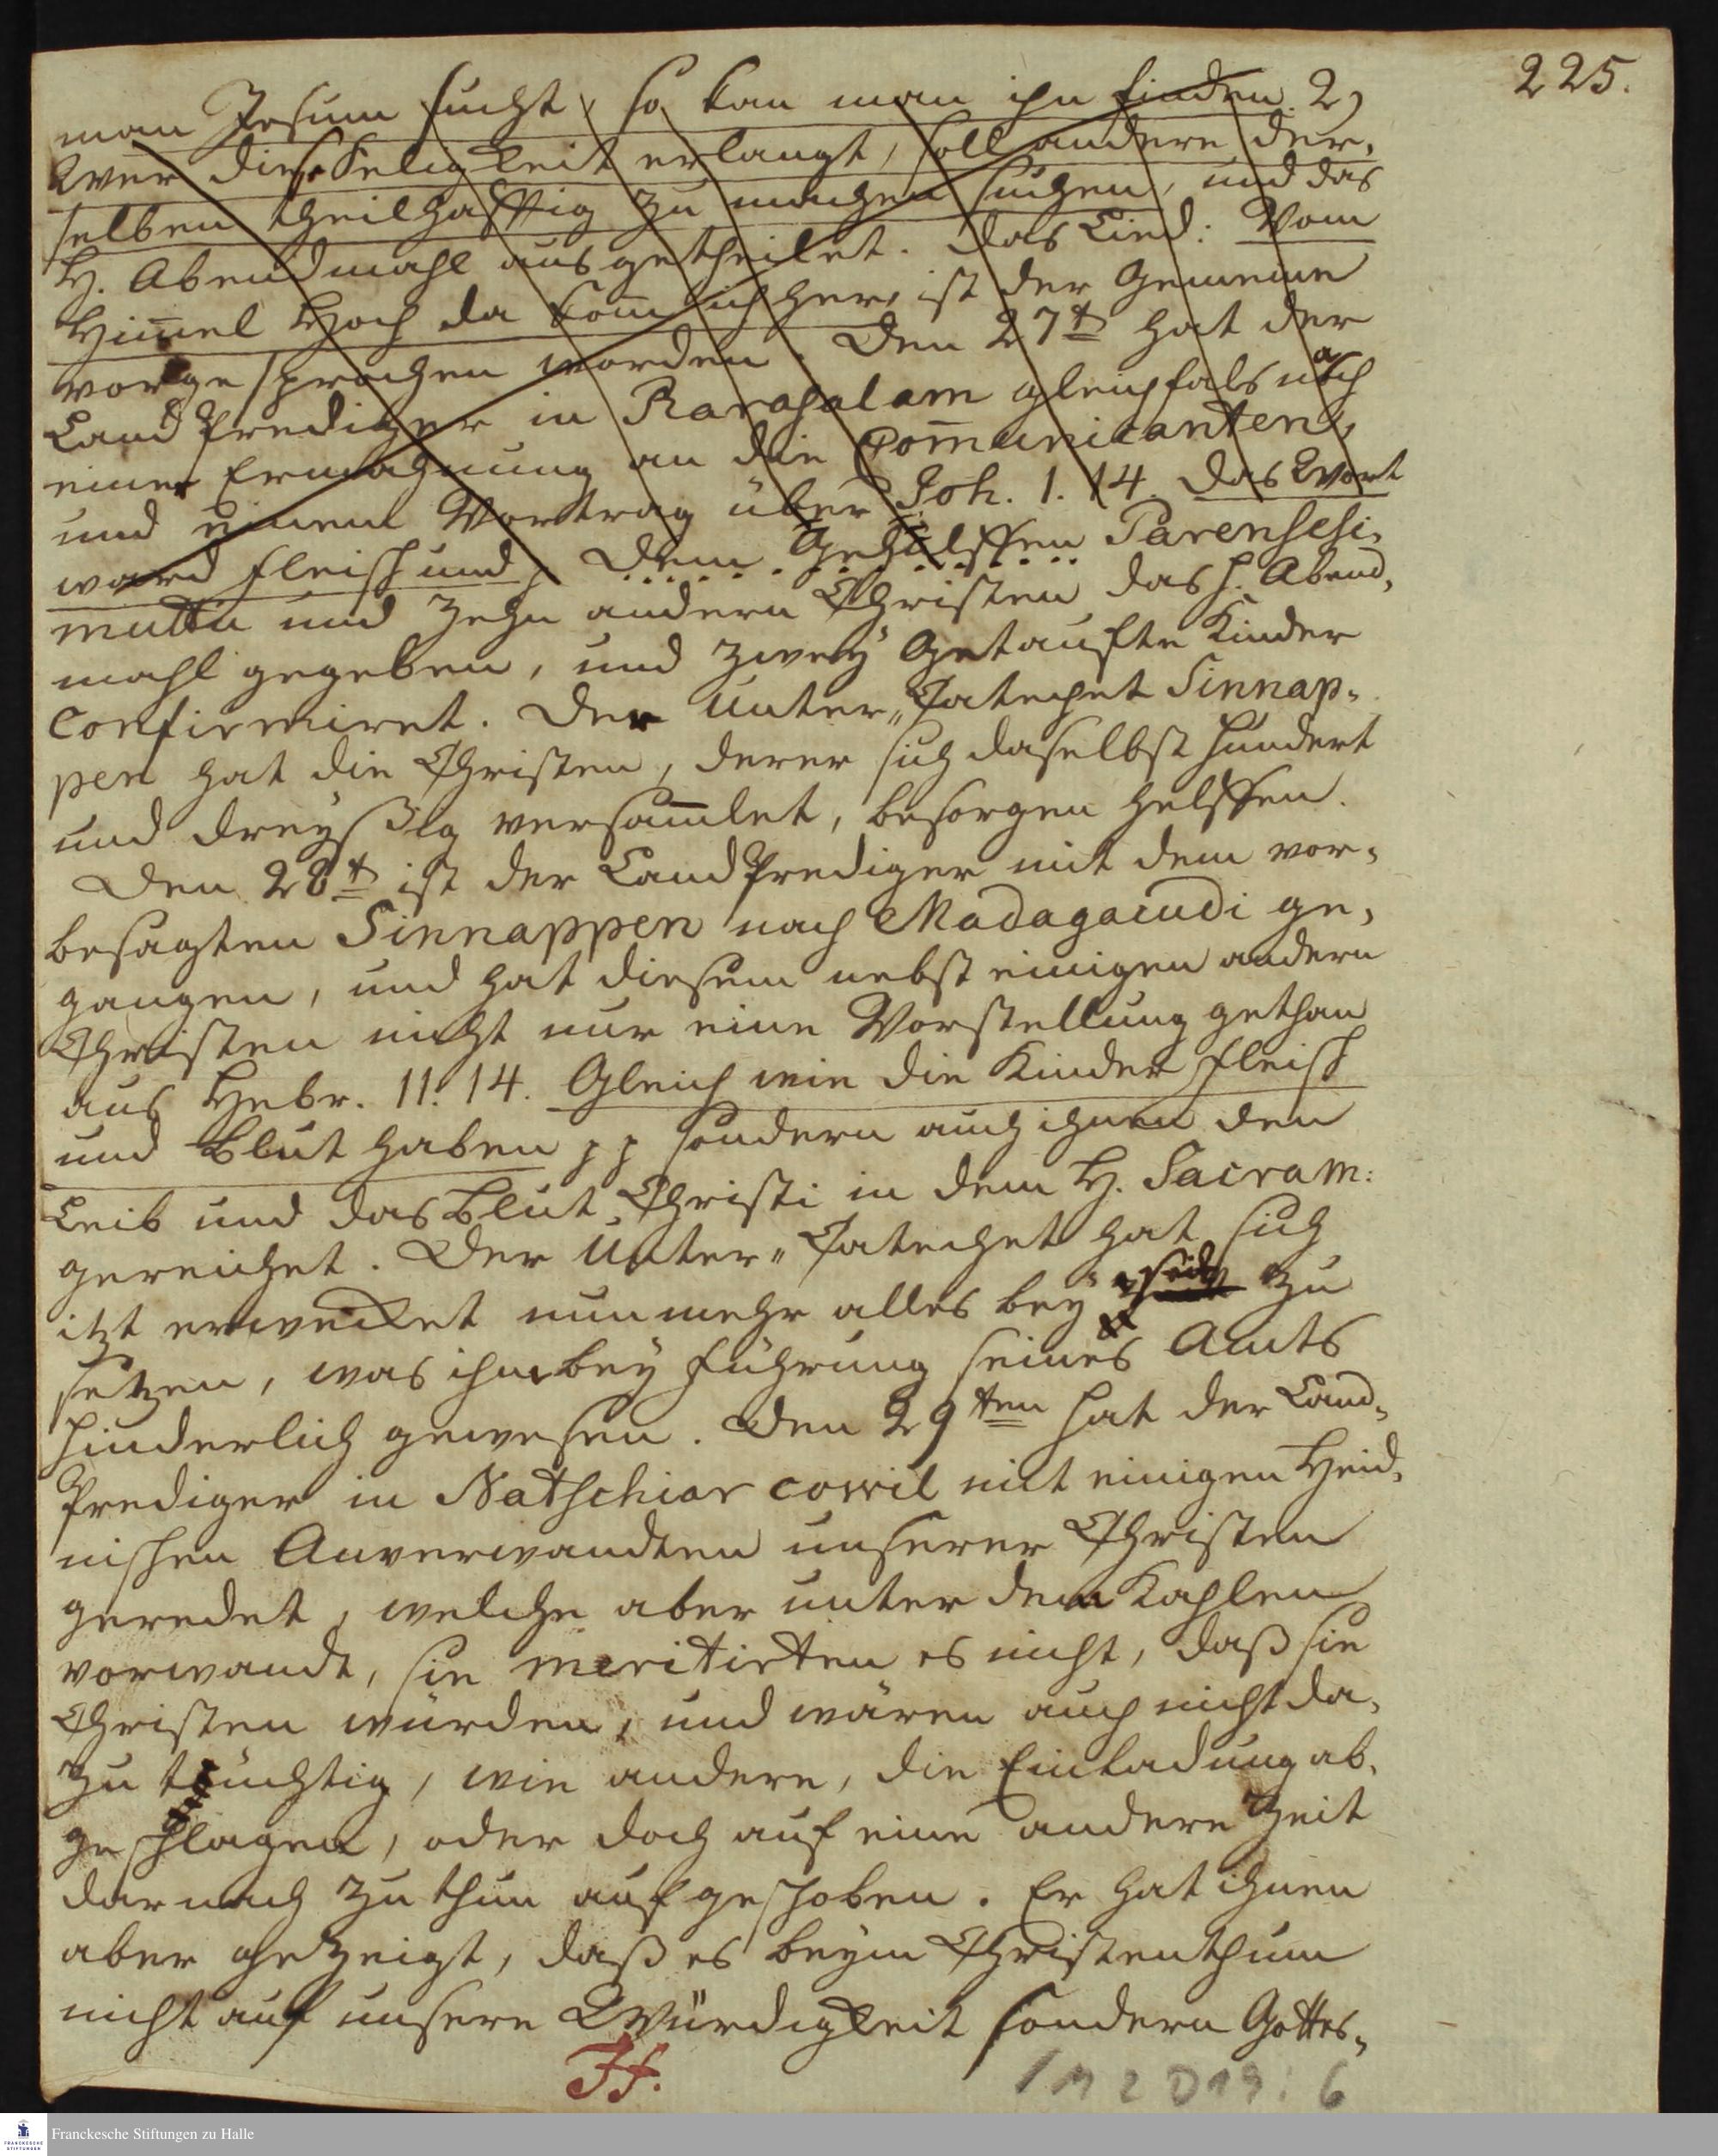 225.
man Jesum sucht, so kan man ihn finden. 2,
Wer diese Seligkeit erlangt, soll andere der-
selben theilhafftig zu machen suchen, und das
H. Abendmahl ausgetheilet. Das Lied: Vom
Him̄el Hoch da kom̄ ich her, ist der Gemeine
vorgesprochen worden. Den 27t hat der
Land Prediger in Rarahalam gleichfals nach
einer Ermahnung an die Com̄unicanten,
und einem Vortrag über Joh. 1. 14. Das Wort
ward Fleisch und p dem Gehülffen Parenschi-
muttu und zehn andern Christen das H. Abend-
mahl gegeben, und zwey Getaufte Kinder
Confirmiret. Der Unter-Catechet Sinnap-
pen hat die Christen, derer sich daselbst hundert
und dreyßig versam̄let, besorgen helffen.
Den 28t ist der Land Prediger mit dem vor-
besagten Sinnappen nach Madagaiudi ge-
gangen, und hat diesem nebst einigen andern
Christen nicht nur eine Vorstellung gethan
aus Hebr. 11. 14. Gleich wie die Kinder Fleisch
und Blut haben pp sondern auch ihnen den
Leib und das Blut Christi in dem H. Sacram:
gereichet. Der Unter-Catechet hat sich
itzt erwecket nunmehr alles bey seit zu
setzen, was ihm bey Führung seines Amts
hinderlich gewesen. Den 29ten hat der Land-
Prediger in Natschiar cowil mit einigen Heid-
nischen Anverwandten unserer Christen
geredet, welche aber unter dem Kahlen
vorwandt, sie meritirten es nicht, daß sie
Christen würden, und wären auch nicht da-
zu tüchtig, wie andere, die Einladung ab-
geschlagen, oder doch auf eine andere Zeit
darnach zu thun aufgeschoben. Er hat ihnen
aber gezeigt, daß es beym Christenthum
nicht auf unsere Würdigkeit sondern Gottes-
Jf.
1 M 2 D 19 : 6
Franckesche Stiftungen zu Halle